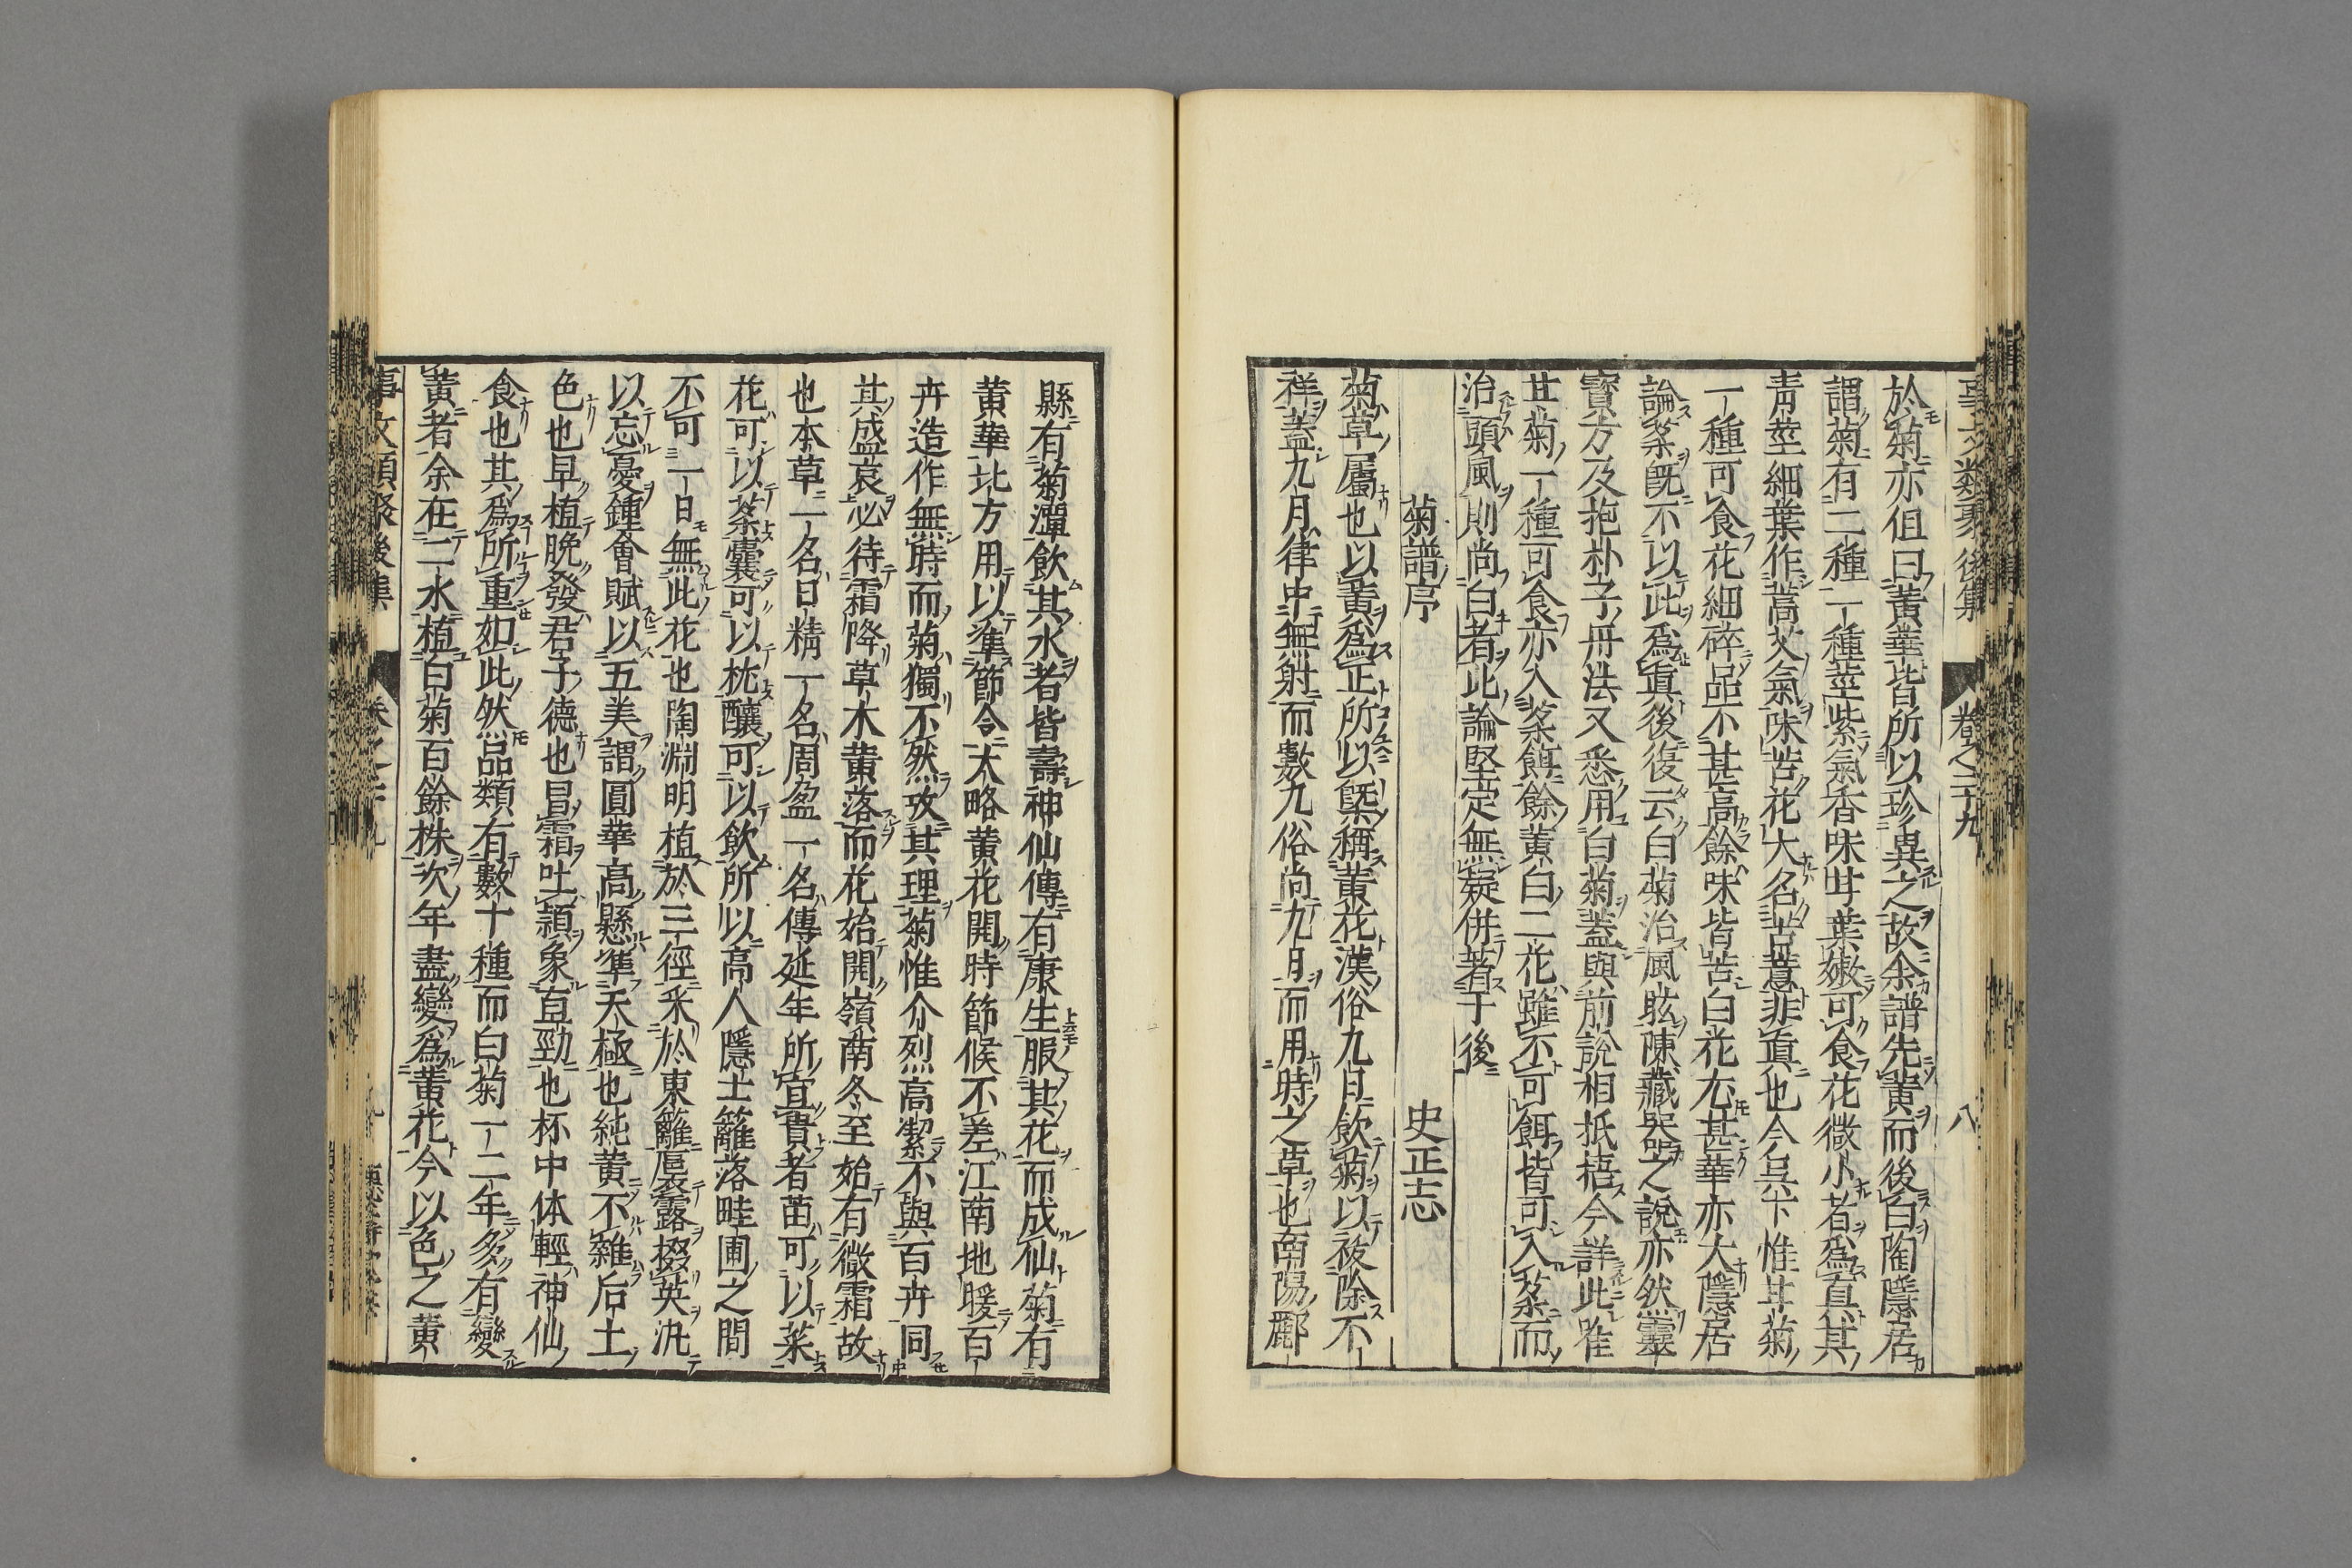 事文類聚後集 卷之二十九 八
於菊亦但曰黃華皆所以珍異之故余譜先黃而後白陶隱居
謂菊有二種一種莖紫氣香味甘葉嫩可食花微小者爲眞其
靑莖細葉作蒿艾氣味苦花大名苦薏非眞也今吳下惟甘菊
一種可食花細碎品不甚高餘味皆苦白花尤甚華亦大隱居
論藥旣不以此爲眞後復云白菊治風眩陳藏器之說亦然靈
寶方及抱朴子丹法又悉用白菊蓋與前說相抵梧今詳此唯
甘菊一種可食亦入藥餌餘黃白二花雖不可餌皆可入藥而
治頭風則尚白者此論堅定無疑併著于後
菊譜序 史正志
菊草屬也以黃爲正所以槩稱黃花漢俗九日飲菊以祓除不
祥蓋九月律中無射而數九俗尚九月而用時之草也南陽酈
縣有菊潭飲其水者皆壽神仙傳有康生服其花而成仙菊有
黃華北方用以準節令大略黃花開時節候不差江南地暖百
卉造作無時而菊獨不然攷其理菊惟介烈高潔不與百卉同
其盛衰必待霜降草木黃落而花始開嶺南冬至始有微霜故
也本草一名日精一名周盈一名傳延年所宜貴者苗可以菜
花可以茶囊可以枕釀可以飲所以高人隱士籬落畦圃之間
不可一日無此花也陶淵明植於三徑采於東籬裛露掇英汎
以忘憂鍾會賦以五美謂圓華高懸準天極也純黃不雜后土
色也早植晚發君子德也冒霜吐穎象直勁也杯中体輕神仙
食也其爲所重如此然品類有數十種而白菊一二年多有變
黃者余在二水植白菊百餘株次年盡變爲黃花今以色之黃
事文類聚後集 卷之二十九